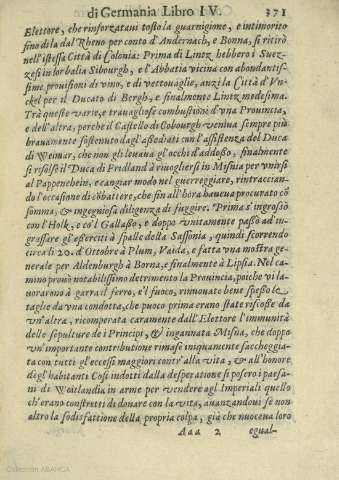 di Germania Libro IV. 371
Elettore, che rinforzatani tosto la guarnigione, e intimorito
fino di la dal Rheno per conto d'Andernach, e Bonna, si ritirò
nell'istessa Città di Colonia: Prima di Lintz hebbero i Suez-
zesi in lor balia Sibourgh, e l'Abbatia vicina con abondantis-
sime prouisioni di vino, e di vettouaglie, anzi la Città d'Vn-
ckel per il Ducato di Bergh, e finalmente Lintz medesima.
Trà queste varie, e trauagliose combustioni d'vna Prouincia,
e dell'altra, perche il Castello di Cobourgh veniua sempre più
brauamente sostenuto dagl'assediati con l'assistenza del Duca
di Weimar, che non gli leuaua gl'occhi d'addosso, finalmente
si risolse il Duca di Fridland à riuogliersi in Misnia per vnirsi
al Pappenheim, e cangiar modo nel guerreggiare, rintraccian-
do l'occasione di cõbattere, che fin all'hora haueua procurato cõ
somma, & ingegniosa diligenza di fuggire. Prima s'ingrossò
con l'Holk, e co'l Gallasso, e doppo vnitamente passò ad in-
grossare gl'esserciti à spalle della Sassonia, quindi scorrendo
circa li 20. d'Ottobre à Plum, Vaida, e fatta vna mostra ge-
nerale per Aldenburgh à Borna, e finalmente à Lipsia. Nel ca-
mino prouò notabilissimo detrimento la Prouincia, poiche vi la-
uorarono à garra il ferro, e'l fuoco, rinouate bene spesso le
taglie da vna condotta, che puoco prima erano state riscosse da
vn'altra, ricomperata caramente dall'Elettore l'immunità
delle sipulture de i Principi, & ingannata Misnia, che doppo
vn'importante contributione rimase iniquamente saccheggia-
ta con tutti gl'eccessi maggiori contr'alla vita, & all'honore
degl'habitanti Cosi indotti dalla desperatione si posero i paesa-
ni di Woitlandia in arme per vendere agl'Imperiali quello
ch'erano constretti di donare con la vita, auanzandoui se non
altro la sodisfattione della propria colpa, già che nuoceua loro
Aaa 2 egual-
Colección ABANCA